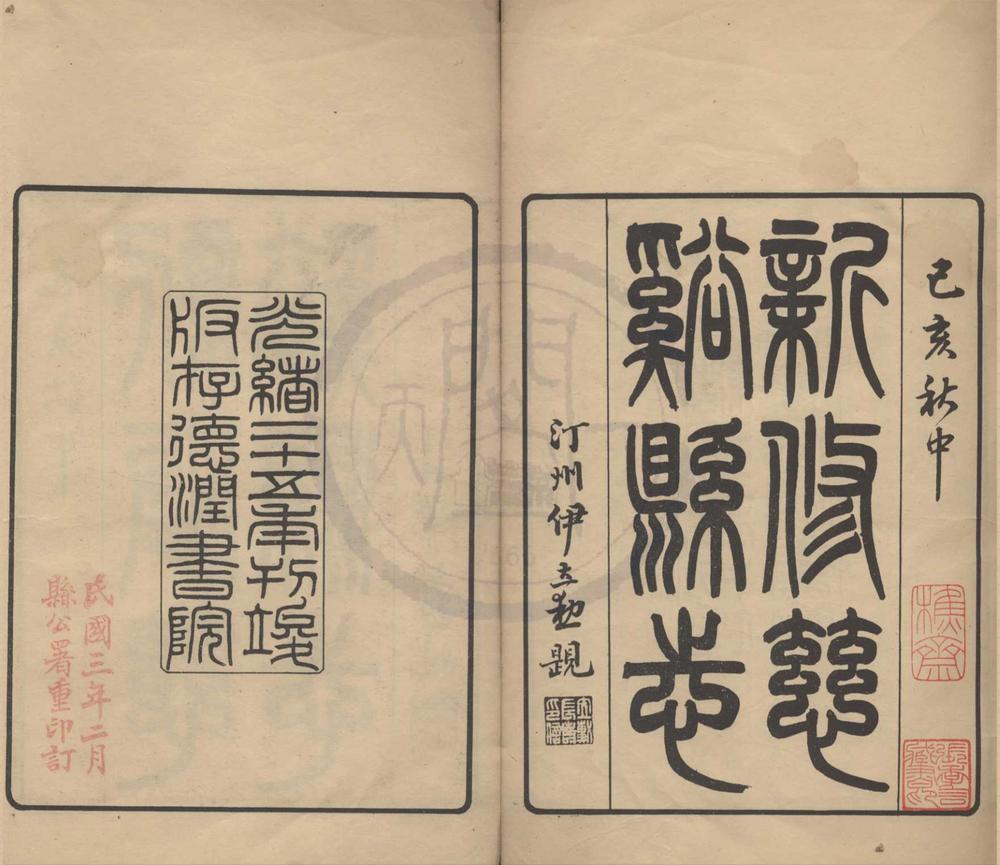 己亥秋中
新修慈
谿縣志
汀州伊立勳題
光緒二十五年刊竣
版存德潤書院
民國三年二月
縣公署重印訂
樵齋